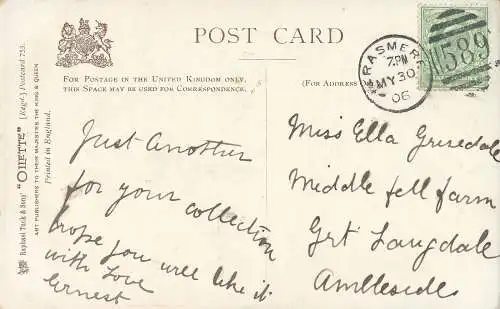 POST CARD
FOR POSTAGE IN THE UNITED KINGDOM ONLY,
THIS SPACE MAY BE USED FOR CORRESPONDENCE.
(FOR ADDRESS
GRASMERE
7.PM
MY 30
06
589
Just Another
for your collection
hope you will like it
with Love
Ernest
Miss Ella Grisedale
Middle fell farm
Grt Langdale
Ambleside
Raphael Tuck & Sons' "OILETTE" [Regd.] Postcard 753.
ART PUBLISHERS TO THEIR MAJESTIES THE KING & QUEEN
Printed in England.